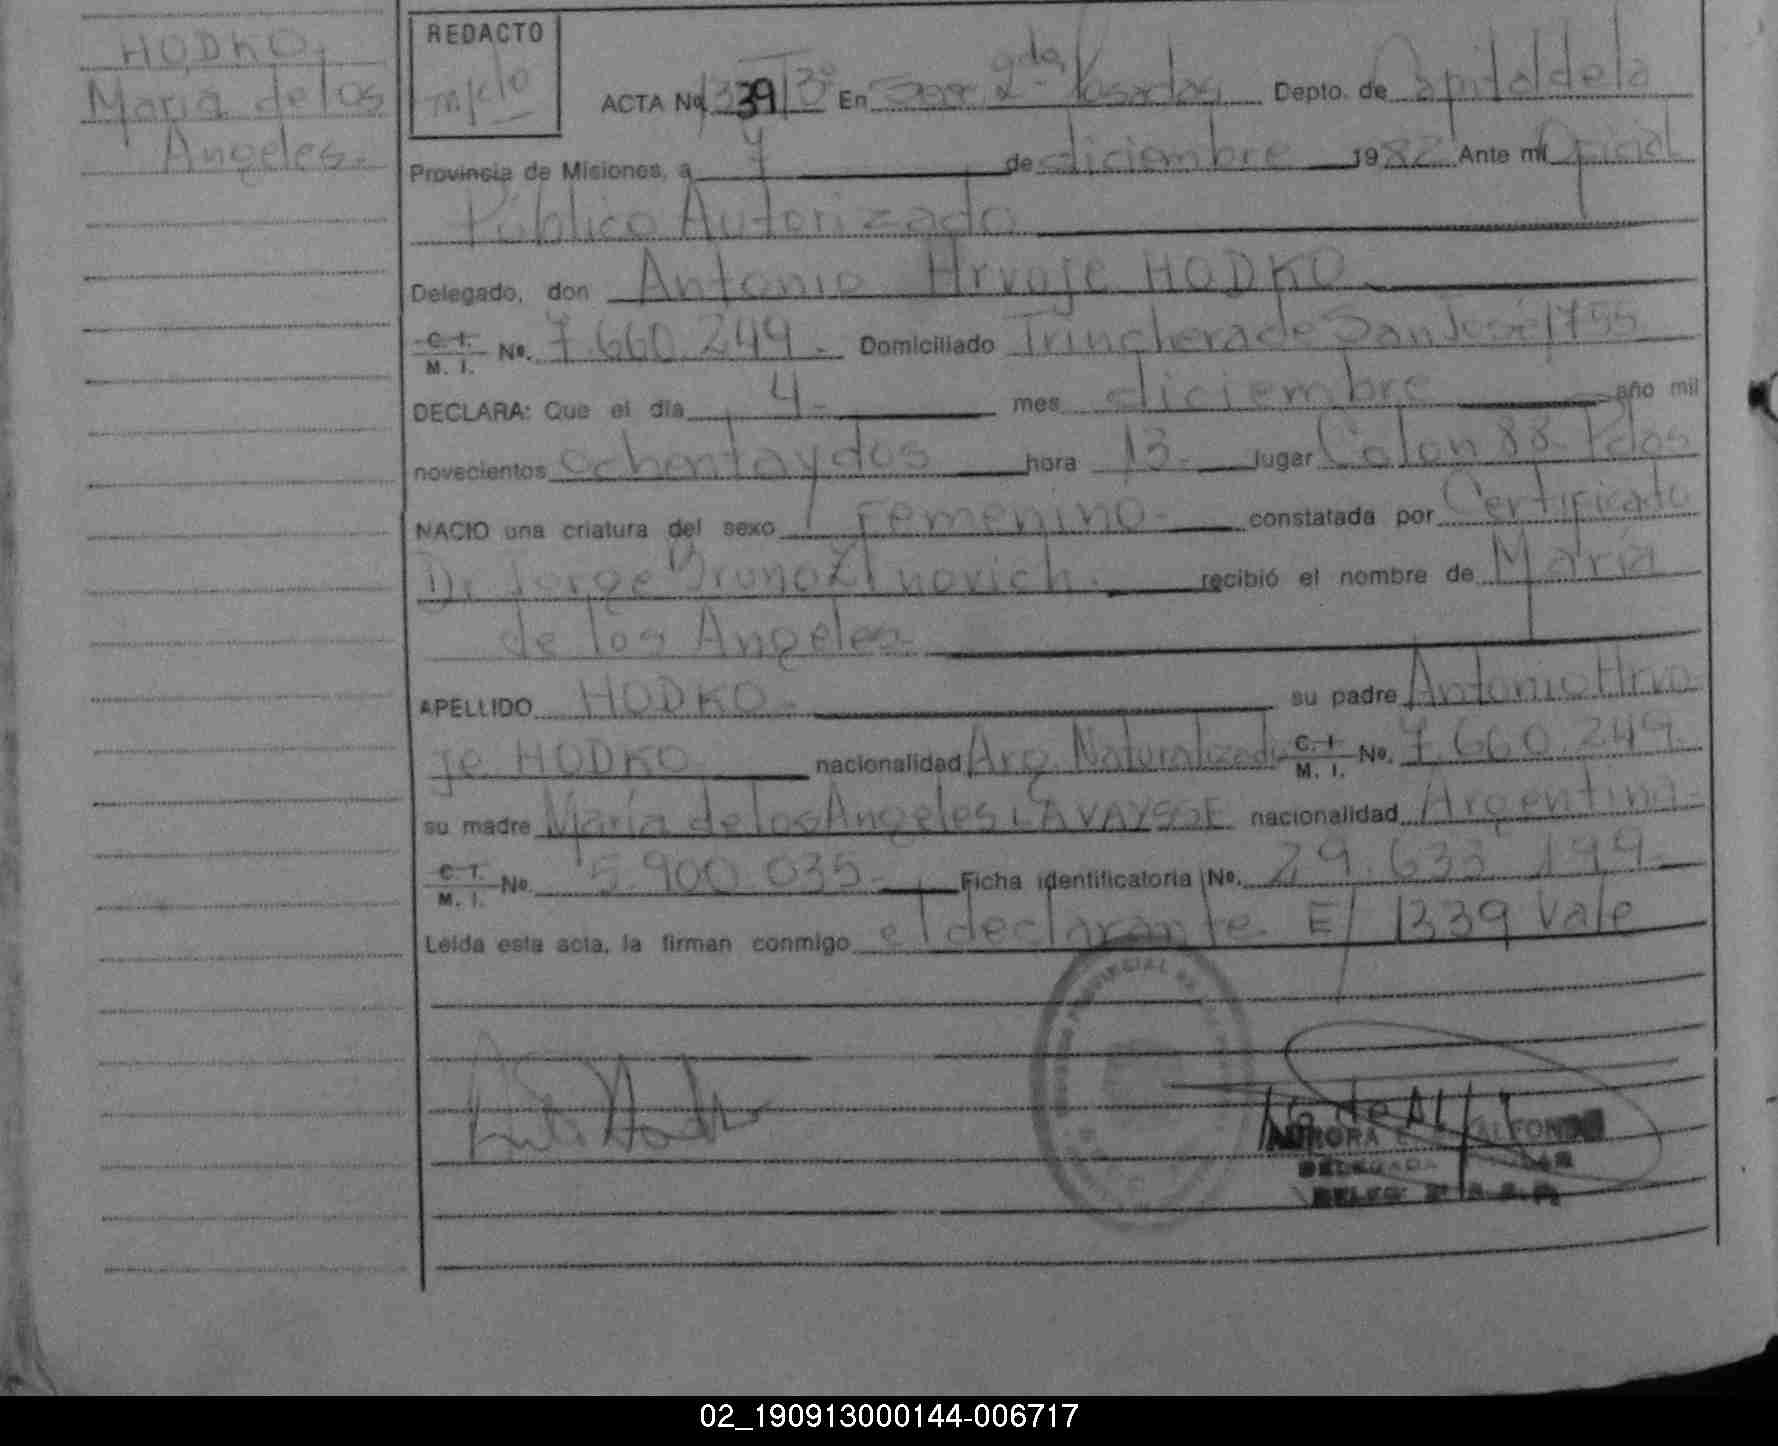 HODKO,
María de los
Angeles.-
REDACTO
ACTA Nº 1339 Tº 3º En Secc 2da. Posadas Depto. de Capital de la
Provincia de Misiones, a 7 de diciembre 1982 Ante mí Oficial
Público Autorizado
Delegado, don Antonio Hrvoje HODKO
C. I. M. I. Nº. 7.660.249.- Domiciliado Trinchera de San José 1755
DECLARA: Que el día 4- mes diciembre año mil
novecientos ochenta y dos hora 13.- lugar Colon 88- Pdas
NACIO una criatura del sexo femenino- constatada por Certificado
Dr Jorge Bruno Zinovich. recibió el nombre de María
de los Angeles-
APELLIDO HODKO- su padre Antonio Hrvo-
je HODKO nacionalidad Arg. Naturalizado C. I. M. I. Nº. 7.660.249-
su madre María de los Angeles LAVAYSSE nacionalidad Argentina-
C. I. M. I. Nº. 5.900.035- Ficha identificatoria Nº. 29.633.199-
Leída esta acta, la firman conmigo el declarante. E/ 1339 Vale
AURORA ALFONSO
DELEGADA TITULAR
02_190913000144-006717